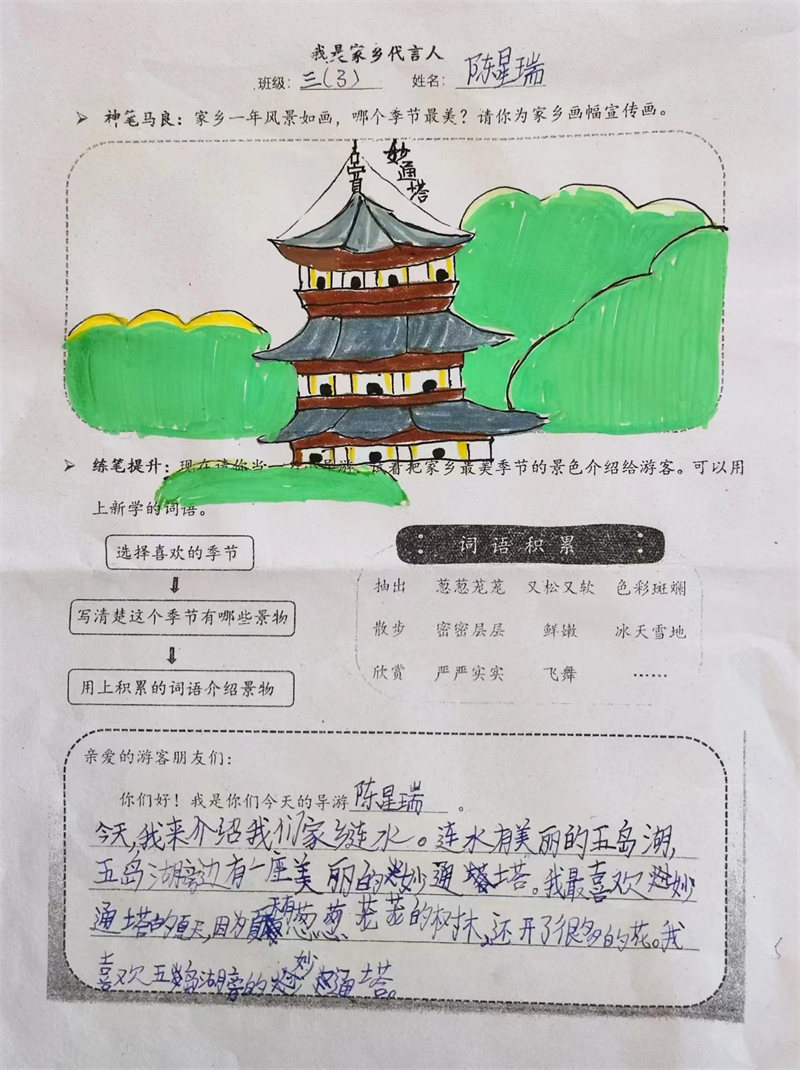 我是家乡代言人
班级：三(3) 姓名：陈星瑞
➢ 神笔马良：家乡一年风景如画，哪个季节最美？请你为家乡画幅宣传画。
妙通塔
➢ 练笔提升：现在请你当一 把家乡最美季节的景色介绍给游客。可以用
上新学的词语。
选择喜欢的季节
写清楚这个季节有哪些景物
用上积累的词语介绍景物
词语积累
抽出 葱葱茏茏 又松又软 色彩斑斓
散步 密密层层 鲜嫩 冰天雪地
欣赏 严严实实 飞舞 ……
亲爱的游客朋友们：
你们好！我是你们今天的导游陈星瑞。
今天，我来介绍我们家乡涟水。涟水有美丽的五岛湖，
五岛湖旁边有一座美丽的妙通塔。我最喜欢妙
通塔的夏天，因为夏天有葱葱茏茏的树木，还开了很多的花。我
喜欢五岛湖旁的妙通塔。